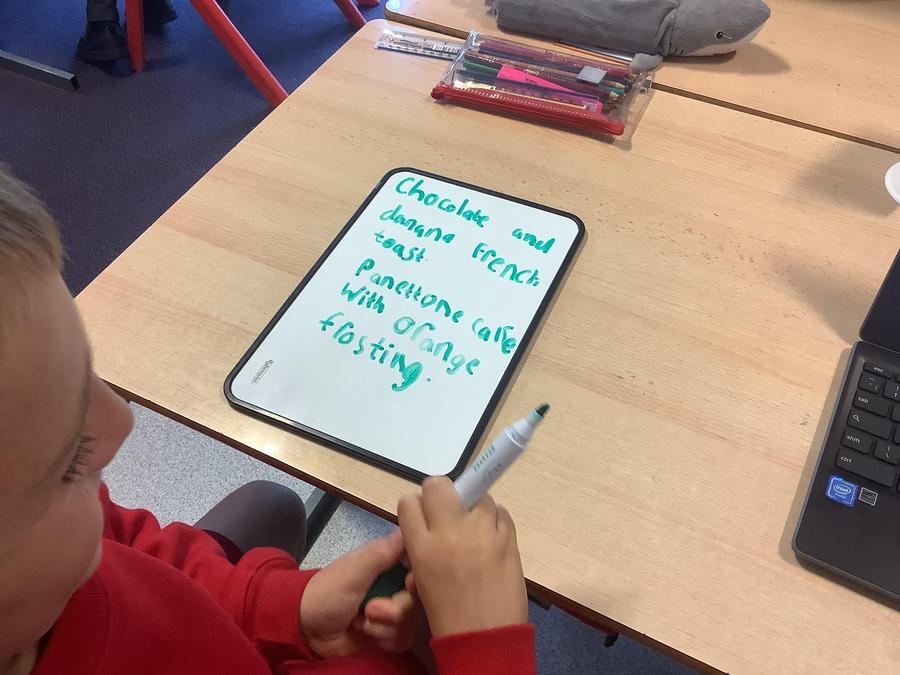 Chocolate and
danana French
toast.
Panettone cake
with orange
frosting.
esc
tab
shift
ctrl
intel